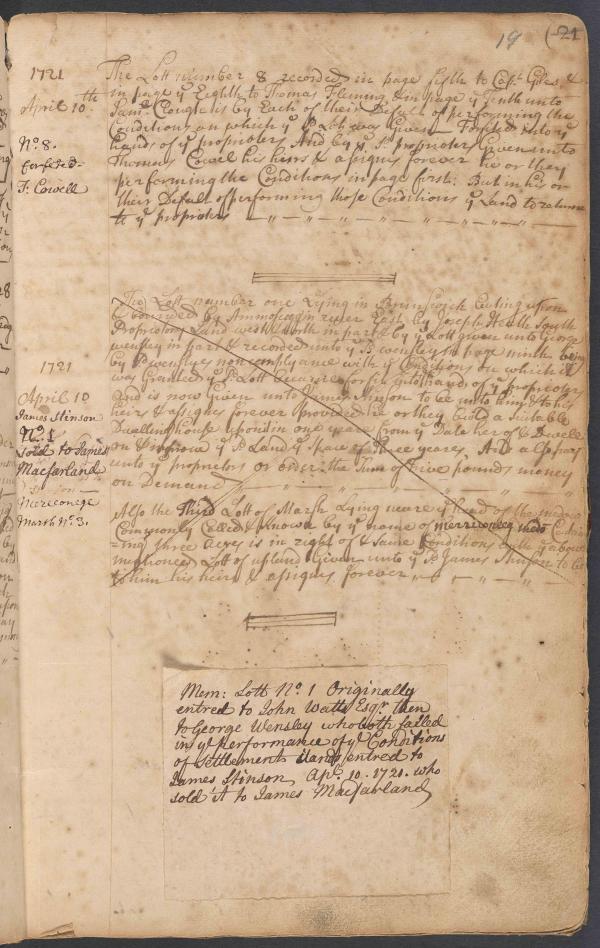 19 (21
1721
April 10th
No. 8.
forfited
T. Cowell
The Lott number 8 recorded in page fifth to Capt. Gyles, &
in page ye Eighth to Thomas Fleming & in page ye Tenth unto
Saml. Clough is by Each of their Default of performing the
Conditions on which ye Lott was Given Forfited into ye
hands of ye proprietors And by ye sd. proprietors Given unto
Thomas Cowell his heirs & assignes forever he or they
performing the Conditions in page first: But in his or
their Default of performing those Conditions ye Land to returne
to ye proprietors
1721
April 10
James Stinson
No. 1
sold to James
Macfarland
Merriconege
Marsh No. 3.
The Lott number one Lying in Brunswick buting upon
& bounded by Ammoscoggin river East, by Joseph Heath South
Proprietors Land west & North in part & by ye Lott given unto George
wensley in part & recorded unto ye sd. wensley in page ninth being
by sd. wensleyes noncomplyance with ye Conditions on which it
was Granted ye sd. Lott became forfit into the hands of ye proprietors
And is now Given unto James Stinson to be unto him & to his
heirs & assignes forever provided he or they build a suitable
Dwelling house upon it in one yeare from ye Date hereof & Dwell
on & improve ye sd. Land ye space of three yeares, And also pay
unto ye proprietors or order the Sum of Five pounds money
on Demand
Also the Third Lott of Marsh Lying neare ye head of the medow
Commonly Called & known by ye name of merriconeg medo Contain
-ing three Acres is in right of & same Conditions with ye above
mentioned Lott of upland Given unto ye sd. James Stinson to be
to him his heirs & assignes forever
Mem: Lott No. 1 Originally
entred to John Watts Esqr. then
to George Wensley who both failed
in ye performance of ye Conditions
of Settlement & and entred to
James Stinson Apl. 10. 1721. who
sold it to James Macfarland